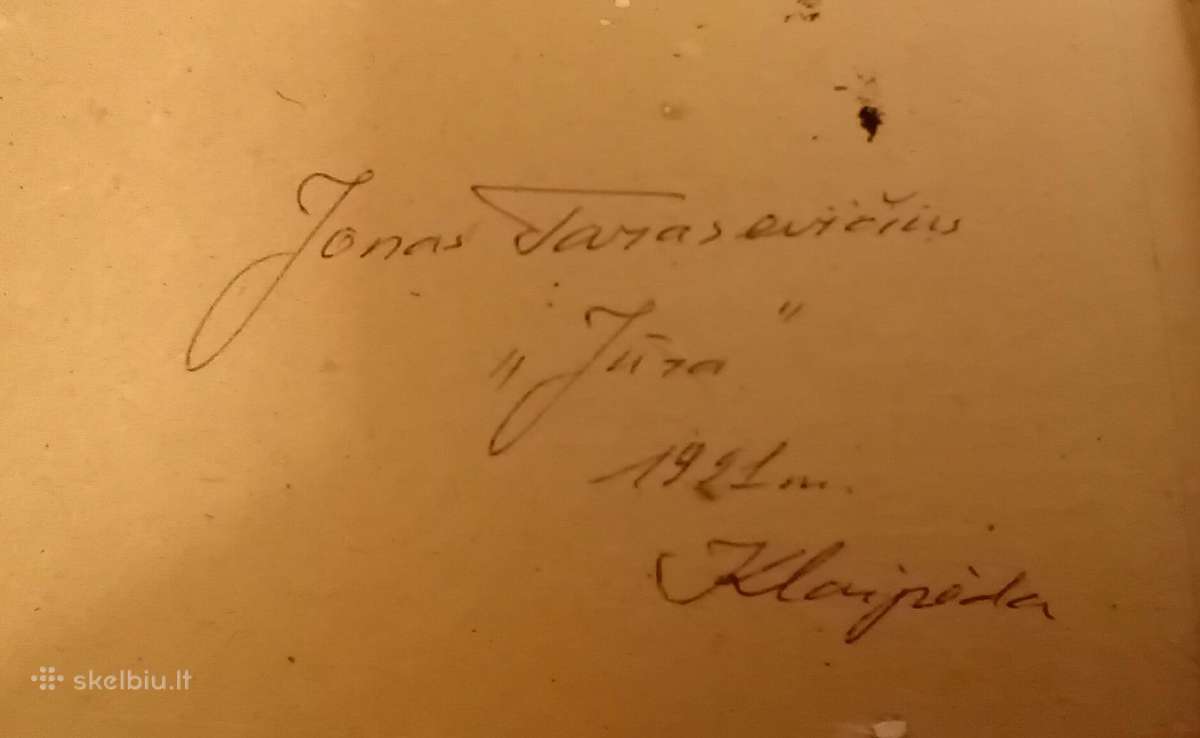 Jonas Tarasevičius
„Jūra"
1921 m.
Klaipėda
skelbiu.lt